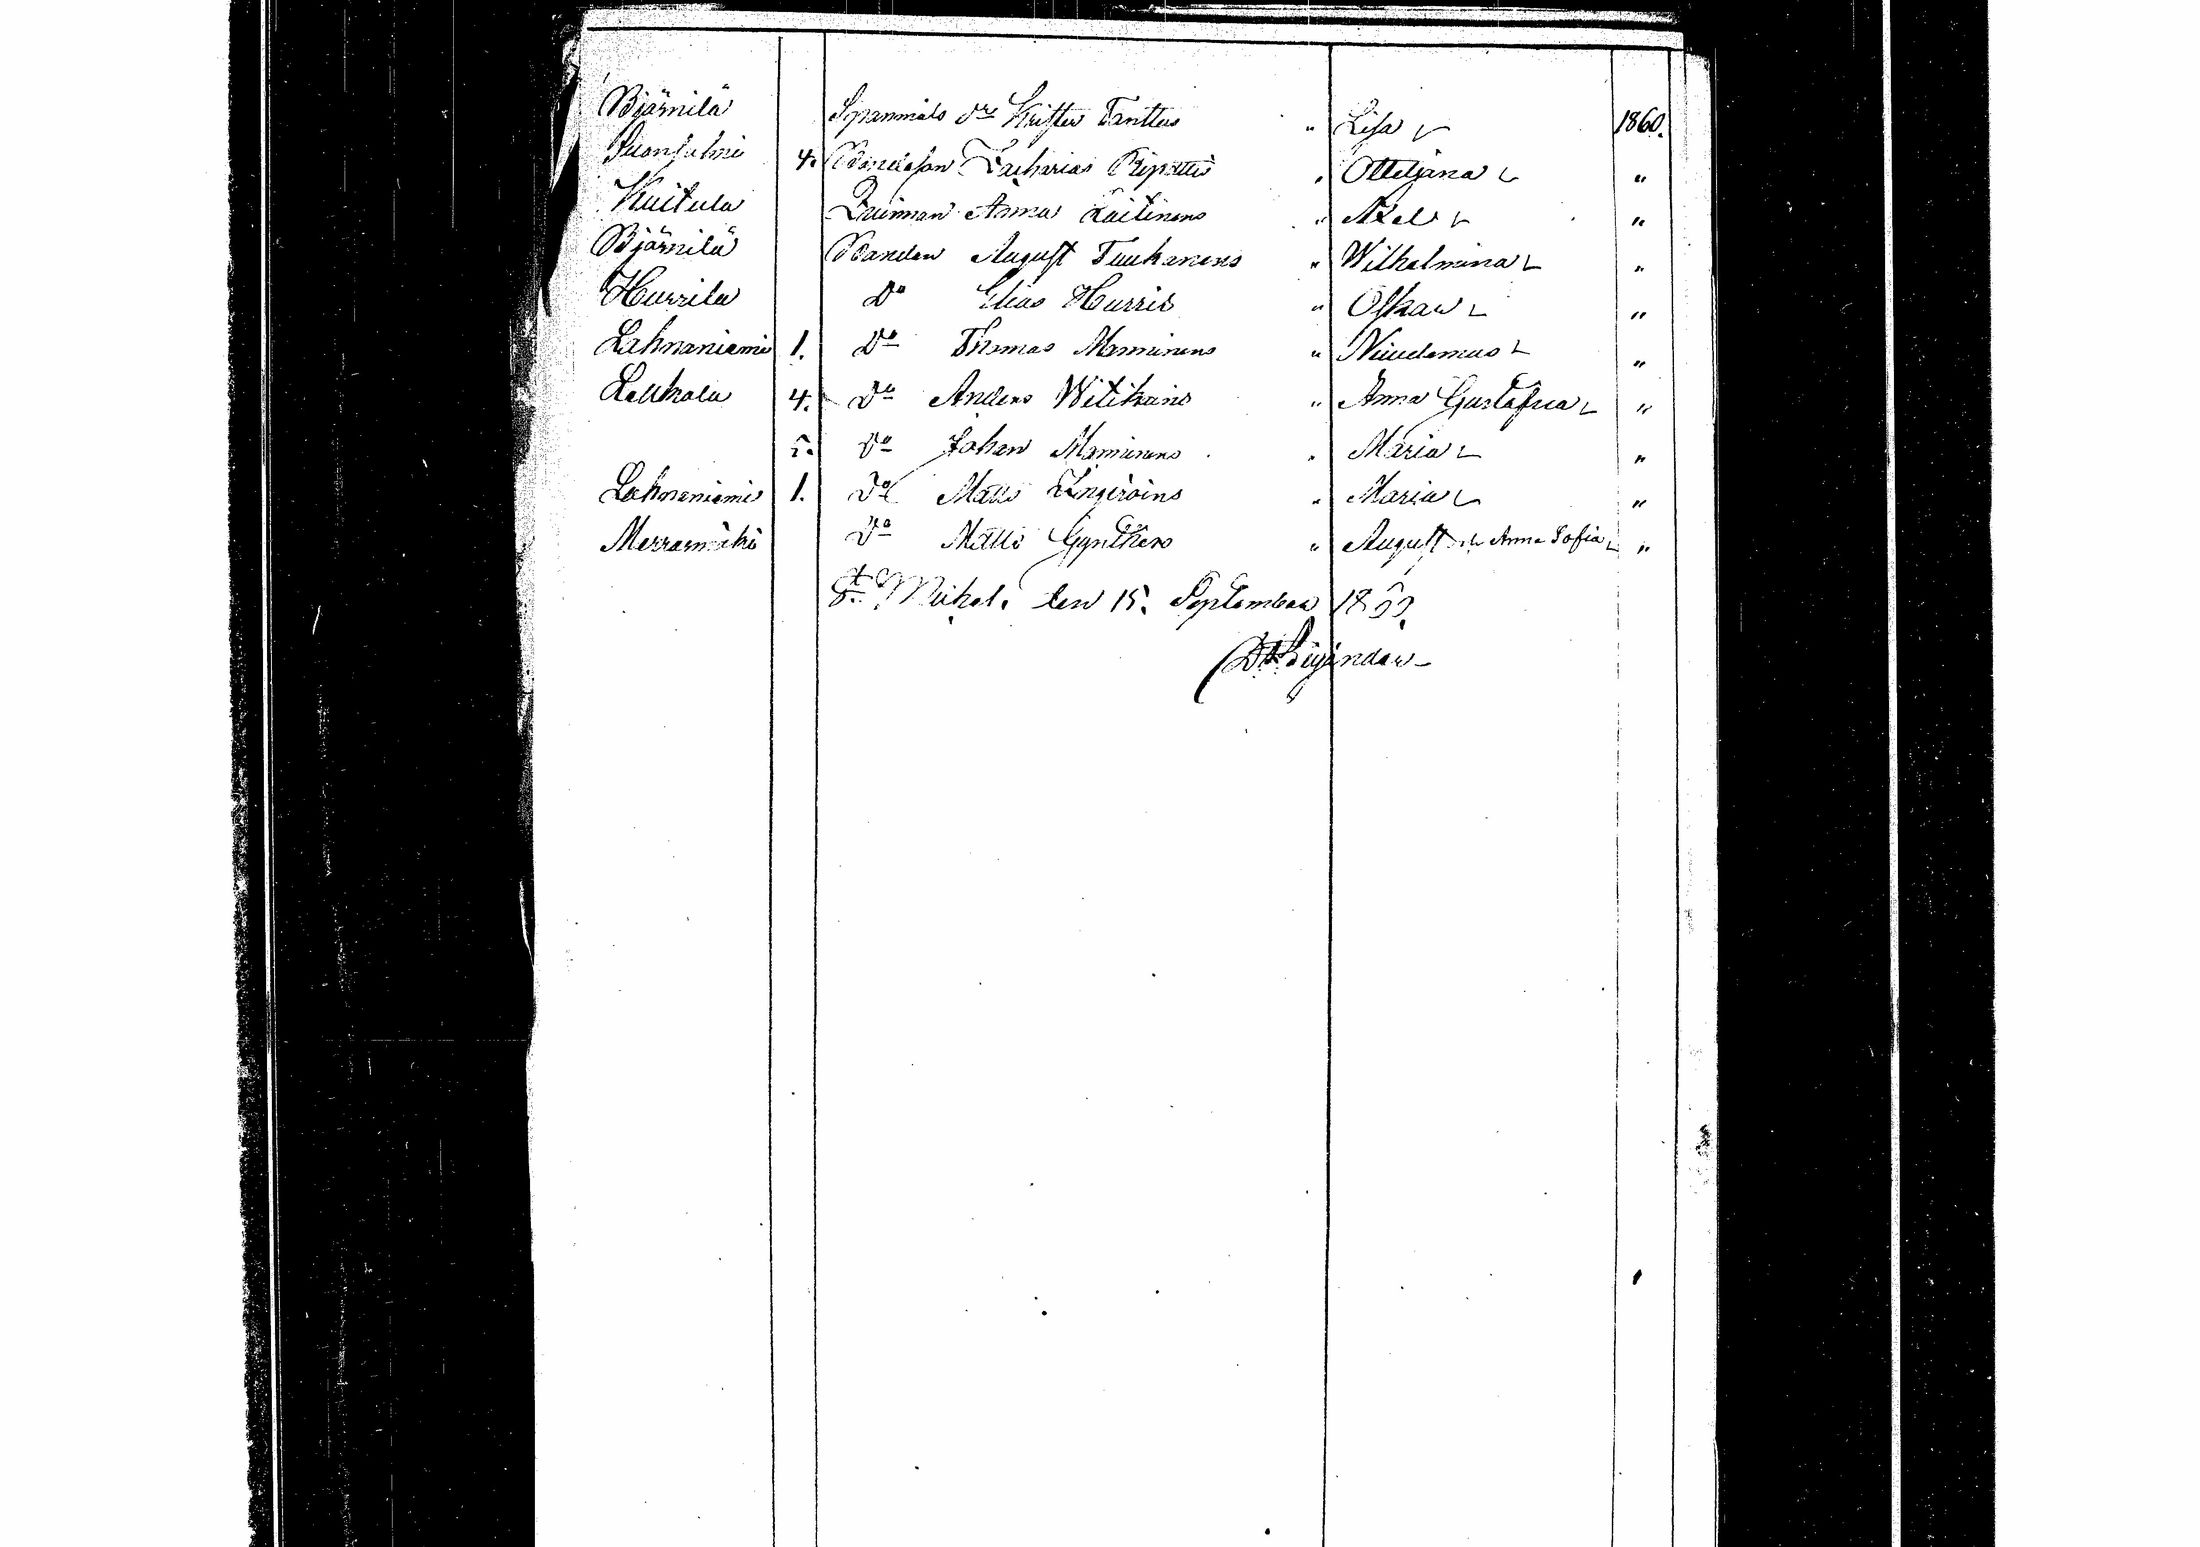 Björnilä Spannmåls Krister Tanttus " Lisa 1860.
Suonsalmi 4. Bondeson Zacharias Ripattis " Ottiljana "
Kuitula Qvinnan Anna Laitinens " Axel "
Björnilä Bonden August Tuukanens " Wilhelmina "
Hurrila Do Elias Hurris " Oskar "
Lahnaniemi 1. Do Thomas Manninens " Nicodemus "
Loukola 4. Do Anders Witikains " Anna Gustafva "
Do Johan Manninens " Maria "
Lahnaniemi 1. Do Matts Ingeroins " Maria "
Do Matts Gynthers " August Anna Sofia "
St Michel. den 15. September